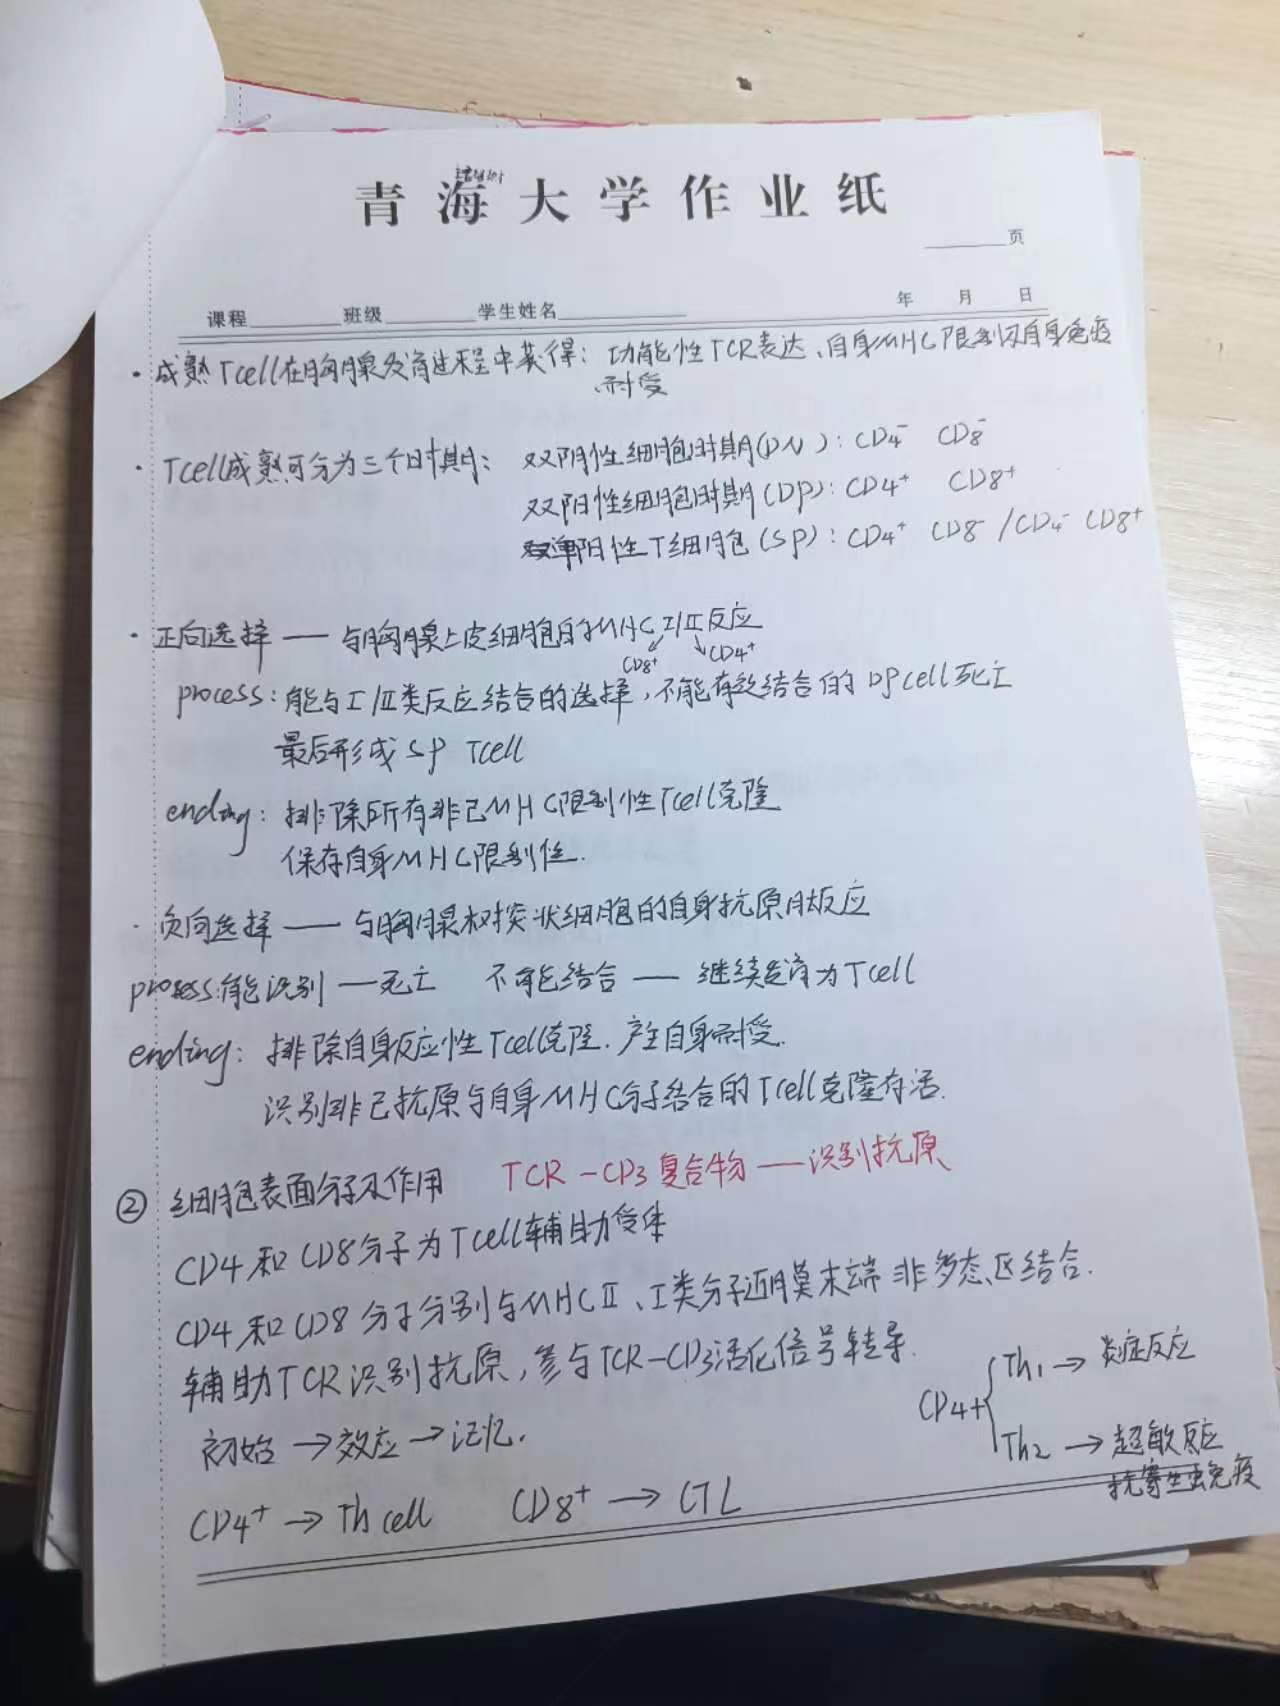 青海大学作业纸
页
课程 班级 学生姓名 年 月 日
· 成熟Tcell在胸腺发育过程中获得：功能性TCR表达、自身MHC限制及自身免疫
耐受
· Tcell成熟可分为三个时期： 双阴性细胞时期(DN)：CD4⁻ CD8⁻
双阳性细胞时期(DP)：CD4⁺ CD8⁺
单阳性T细胞(SP)：CD4⁺ CD8⁻/CD4⁻ CD8⁺
· 正向选择 —— 与胸腺上皮细胞的MHC I/II反应
CD8⁺ CD4⁺
process：能与I/II类反应结合的选择，不能有效结合的DPcell死亡
最后形成SP Tcell
ending：排除所有非己MHC限制性Tcell克隆
保存自身MHC限制性.
· 负向选择 —— 与胸腺树突状细胞的自身抗原肽反应
process:能识别 — 死亡 不能结合 — 继续发育为Tcell
ending：排除自身反应性Tcell克隆.产生自身耐受.
识别非己抗原与自身MHC分子结合的Tcell克隆存活.
② 细胞表面分子及作用 TCR-CD3复合物——识别抗原
CD4和CD8分子为Tcell辅助受体
CD4和CD8分子分别与MHCII、I类分子近膜末端非多态区结合.
辅助TCR识别抗原，参与TCR-CD3活化信号转导.
初始→效应→记忆.
CD4+ Th1→炎症反应
Th2→超敏反应
抗寄生虫免疫
CD4⁺→Th cell CD8⁺→CTL